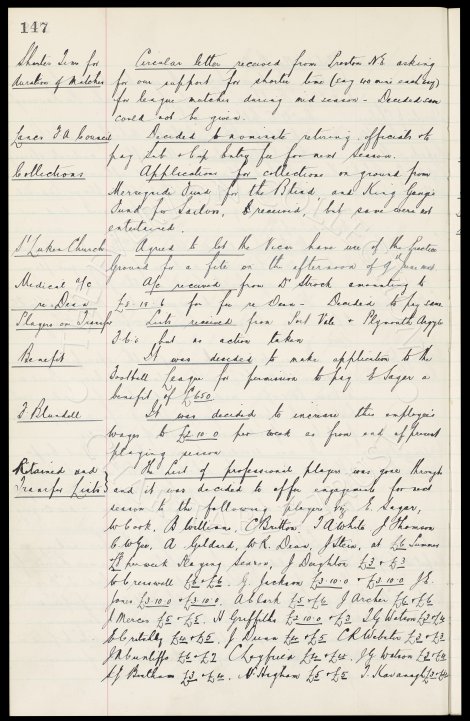 147
Shorter Time for
duration of Matches
Circular letter received from Preston N.E. asking
for our support for shorter time (say 40 mins each way)
for league matches during mid season - Decided same
could not be given.
Lancs F A Council
Decided to nominate retiring officials & to
pay Sub & Cup Entry fee for next season.
Collections
Applications for collections on ground from
Merseyside Fund for the Blind and King George
Fund for Sailors, received, but same were not
entertained.
St Lukes Church
Agreed to let the Vicar have use of the Practice
Ground for a fete on the afternoon of 9th June next
Medical a/c
re Dean
A/c received from Dr amounting to
£5-10-6 for fee re Dean - Decided to pay same
Players on Transfer
Lists received from Port Vale & Plymouth Argyle
F.C.s but no action taken
Benefit
It was decided to make application to the
Football League for permission to pay E Sagar a
benefit of £650
F Blundell
It was decided to increase this employee's
wages to £2.10.0 per week as from end of present
playing season
Retained and
Transfer Lists
The List of professional players was gone through
and it was decided to offer engagements for next
season to the following players viz E. Sagar,
W Cook, B Williams, C Britton, T A White J Thomson
C W Gee, A Geldard, W R. Dean, J Stein, at £6 Summer
£8 per week Playing Season, J £3 & £3
W C Cresswell £6 & £6. G. Jackson £3.10.0 & £3.10.0 J E.
Jones £3.10.0 & £3.10.0. A E Clark £5 & £6 J Archer £6 & £6
J Mercer £5 & £5. H Griffiths £2.10.0 & £3 T G Watson £3 & £4
C Leyfield £4 & £4. J G Watson £3 & £4
J R Cunliffe £6 & £7
J Dunn £4 & £5 C R Webster £3 & £3
S J Bentham £3 & £4. N Higham £5 & £5 F. Kavanagh £3 & £4